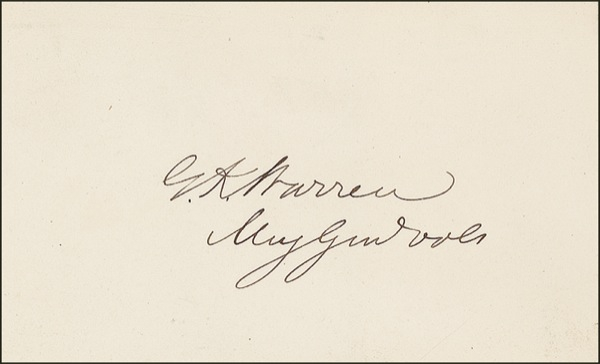 G. K. Warren
Maj Genl Vols